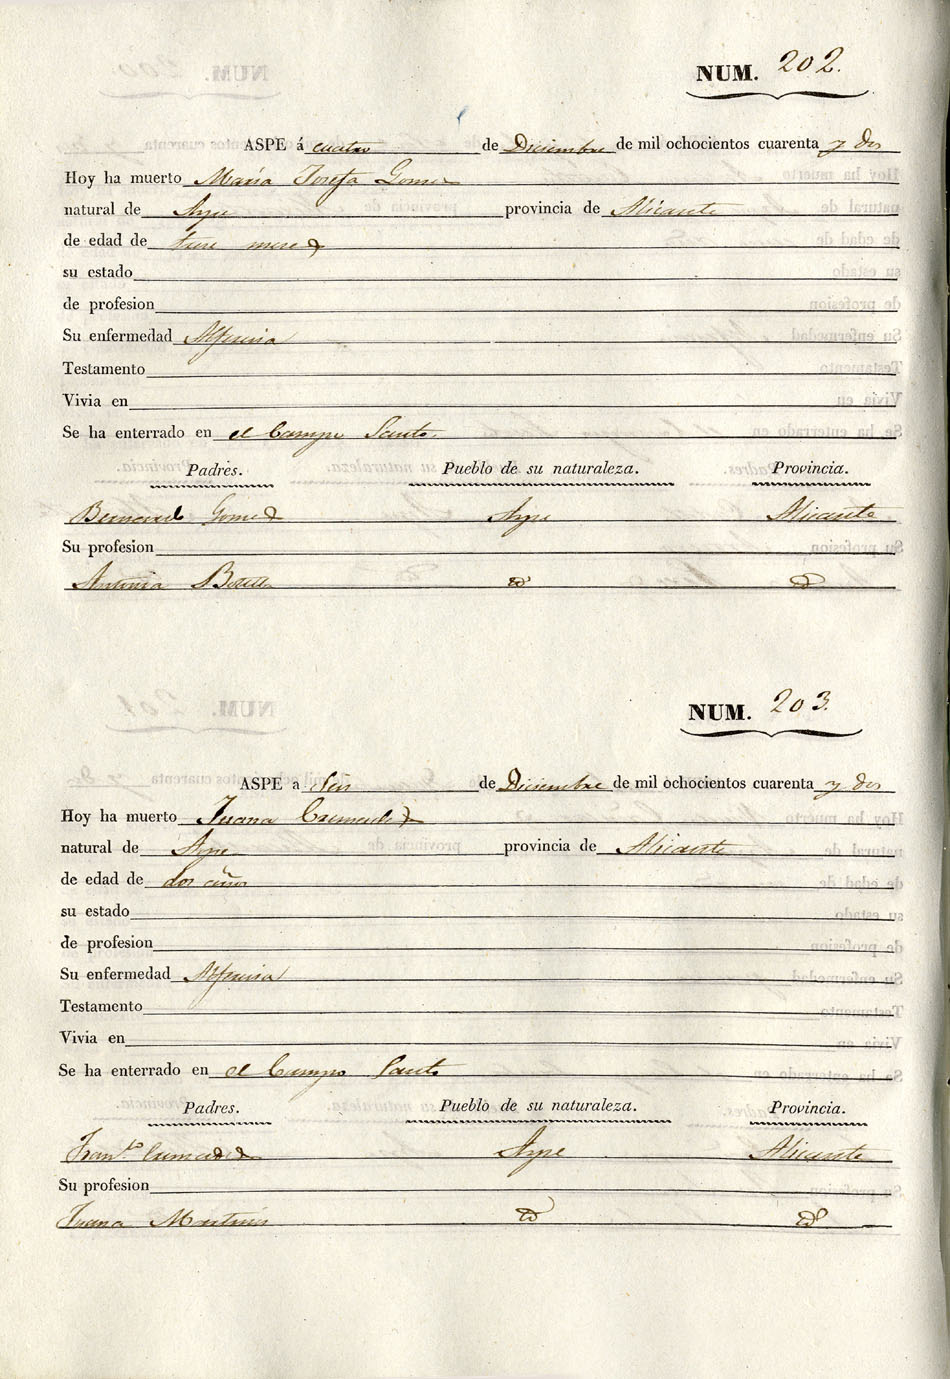 NUM. 202.
ASPE á cuatro de Diciembre de mil ochocientos cuarenta y dos
Hoy ha muerto María Josefa Gomez
natural de Aspe provincia de Alicante
de edad de meses
su estado
de profesion
Su enfermedad Alferecia
Testamento
Vivia en
Se ha enterrado en el Campo Santo.
Padres. Pueblo de su naturaleza. Provincia.
Bernardo Gomez Aspe Alicante
Su profesion
Antonia Botella id id
NUM. 203.
ASPE a Seis de Diciembre de mil ochocientos cuarenta y dos
Hoy ha muerto Juana Cremades
natural de Aspe provincia de Alicante
de edad de dos años
su estado
de profesion
Su enfermedad Alferecia
Testamento
Vivia en
Se ha enterrado en el Campo Santo
Padres. Pueblo de su naturaleza. Provincia.
Fran.co Cremades Aspe Alicante
Su profesion
Juana Martinez id id